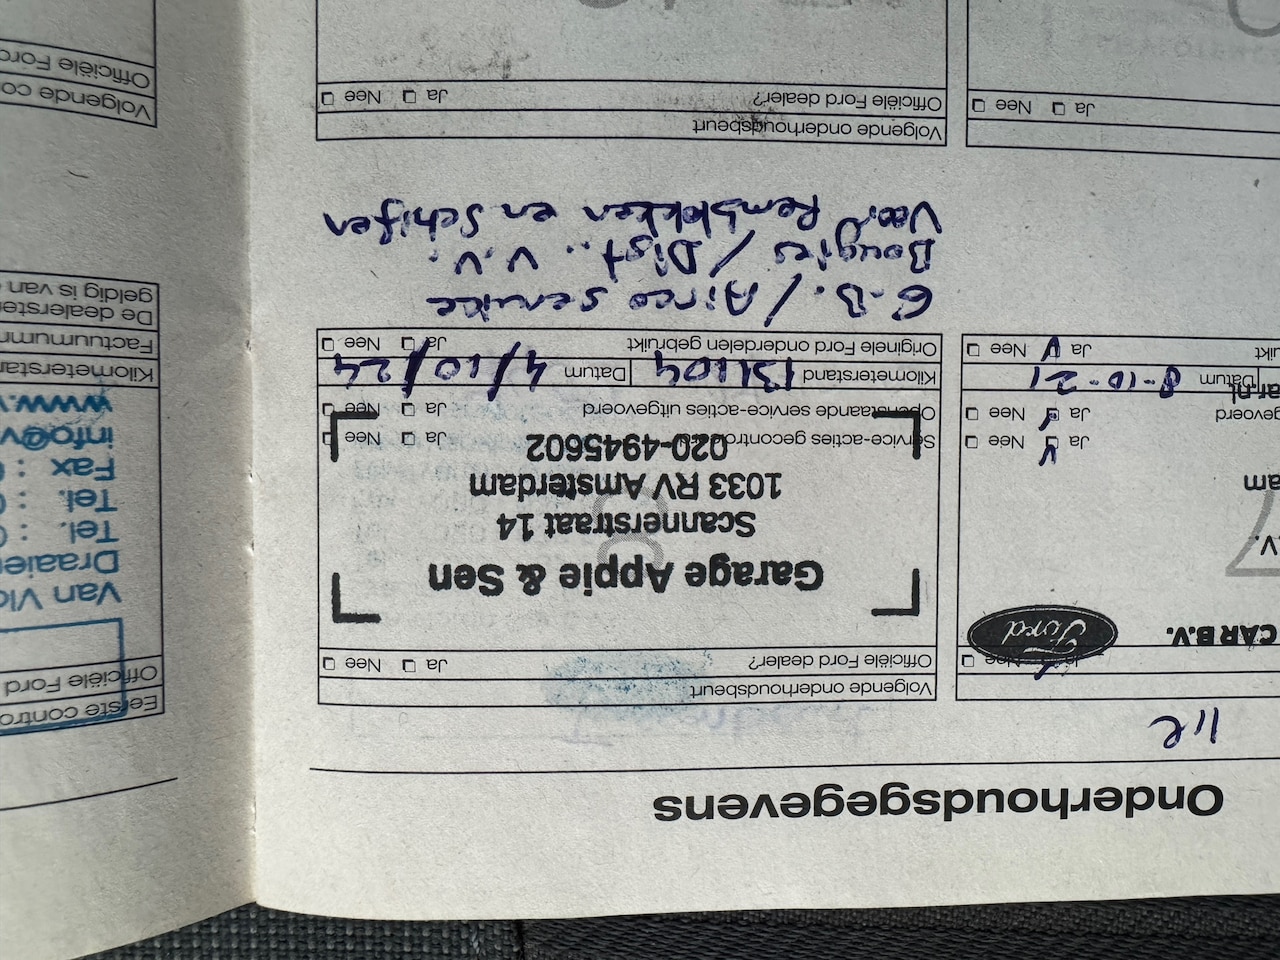 Onderhoudsgegevens
Volgende onderhoudsbeurt
Officiële Ford dealer? Ja Nee
Garage Appie & Sen
Scannerstraat 14
1033 RV Amsterdam
020-4945602
Service-acties gecontroleerd Ja Nee
Openstaande service-acties uitgevoerd Ja Nee
Kilometerstand 131104 Datum 4/10/24
Originele Ford onderdelen gebruikt Ja Nee
G.B. / Airco service
Bougies / Dist.. V.V.
Voor Remblokken en Schijfen
Volgende onderhoudsbeurt
Officiële Ford dealer? Ja Nee
Ja Nee
CAR B.V.
Ford
Ja Nee
Ja Nee
Datum 8-10-21
Ja Nee
Ja Nee
Eerste contro
Officiële Ford
Van Vlo
Draaier
Tel. :
Tel. :
Fax :
info@v
www.v
Kilometerstan
Factuurnumm
De dealerster
geldig is van
Volgende co
Officiële Ford